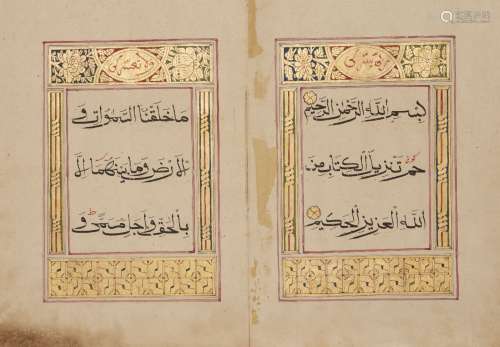 بسم الله الرحمن الرحيم
حم تنزيل الكتاب من
الله العزيز الحكيم
ما خلقنا السموات و
الارض وما بينهما الا
بالحق واجل مسمى و